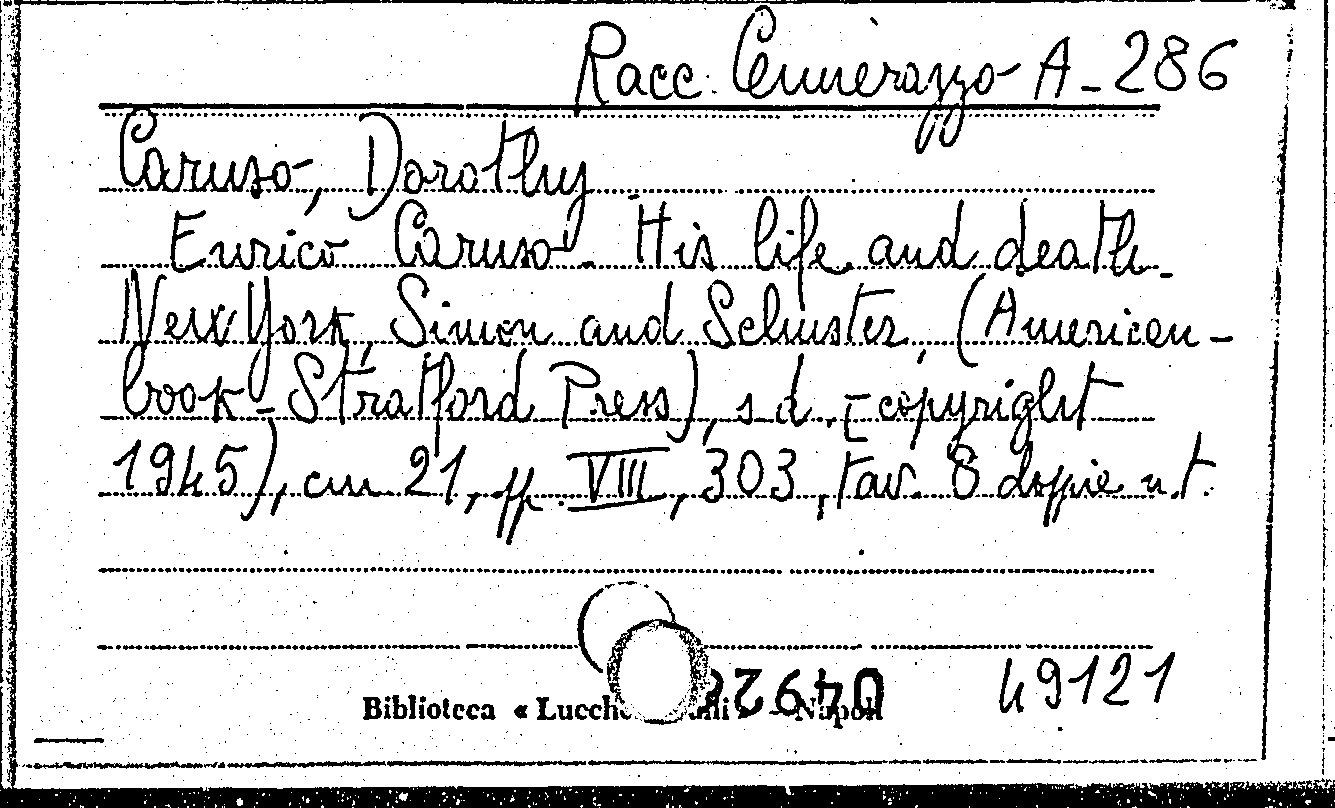 Racc. Cennerazzo A-286
Caruso, Dorothy
Enrico Caruso. His life and death.
New York, Simon and Schuster, (American-
book-Stratford Press), s d. [copyright
1945), cm 21, pp. VIII, 303, tav. 8 doppie n.t.
49121
Biblioteca « - Napoli